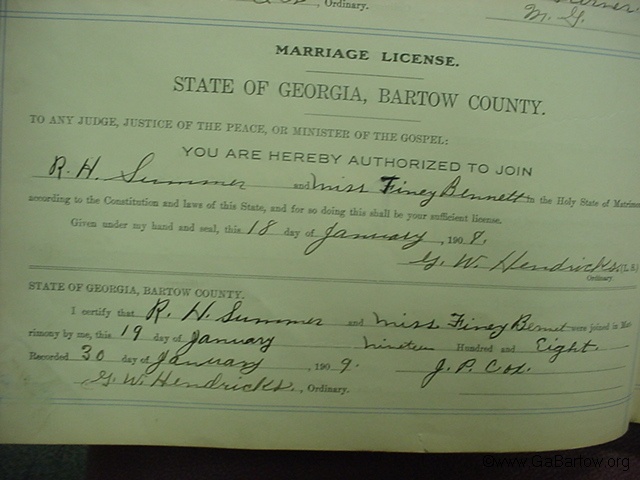 , Ordinary.
M. G.
MARRIAGE LICENSE.
STATE OF GEORGIA, BARTOW COUNTY.
TO ANY JUDGE, JUSTICE OF THE PEACE, OR MINISTER OF THE GOSPEL:
YOU ARE HEREBY AUTHORIZED TO JOIN
R. H. Summer and Miss Finey Bennett in the Holy State of Matrimo
according to the Constitution and laws of this State, and for so doing this shall be your sufficient license.
Given under my hand and seal, this 18 day of January, 190
G. W. Hendricks (L. S.)
Ordinary.
STATE OF GEORGIA, BARTOW COUNTY.
I certify that R. H. Summer and Miss Finey Bennet were joined in Mat-
rimony by me, this 19 day of January nineteen Hundred and Eight.
Recorded 30 day of January, 1909. J. P. Cox.
G. W. Hendricks., Ordinary.
©www.GaBartow.org